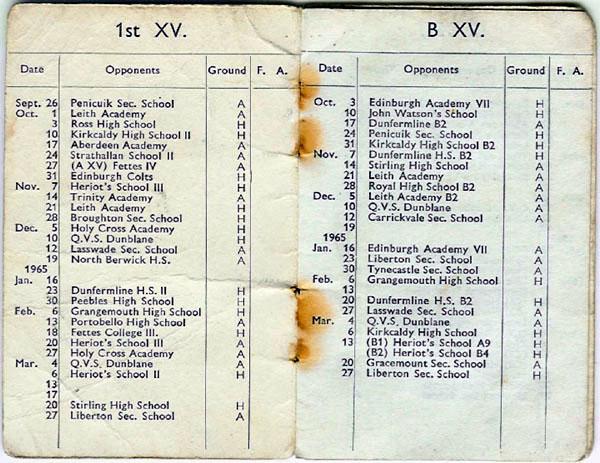 1st XV.
Date Opponents Ground F. A.
Sept. 26 Penicuik Sec. School A
Oct. 1 Leith Academy A
3 Ross High School H
10 Kirkcaldy High School II H
17 Aberdeen Academy A
24 Strathallan School II A
27 (A XV) Fettes IV A
31 Edinburgh Colts H
Nov. 7 Heriot's School III H
14 Trinity Academy A
21 Leith Academy H
28 Broughton Sec. School H
Dec. 5 Holy Cross Academy H
10 Q.V.S. Dunblane H
12 Lasswade Sec. School A
19 North Berwick H.S. A
1965
Jan. 16
23 Dunfermline H.S. II H
30 Peebles High School H
Feb. 6 Grangemouth High School H
13 Portobello High School A
18 Fettes College III. H
20 Heriot's School III A
27 Holy Cross Academy A
Mar. 4 Q.V.S. Dunblane A
6 Heriot's School II H
13
17
20 Stirling High School H
27 Liberton Sec. School A
B XV.
Date Opponents Ground F. A.
Oct. 3 Edinburgh Academy VII H
10 John Watson's School H
17 Dunfermline B2 A
24 Penicuik Sec. School A
31 Kirkcaldy High School B2 H
Nov. 7 Dunfermline H.S. B2 H
14 Stirling High School A
21 Leith Academy A
28 Royal High School B2 A
Dec. 5 Leith Academy B2 A
10 Q.V.S. Dunblane H
12 Carrickvale Sec. School A
19
1965
Jan. 16 Edinburgh Academy VII A
23 Liberton Sec. School A
30 Tynecastle Sec. School A
Feb. 6 Grangemouth High School H
13
20 Dunfermline H.S. B2 H
27 Lasswade Sec. School A
Mar. 4 Q.V.S. Dunblane A
6 Kirkcaldy High School H
13 (B1) Heriot's School A9 H
(B2) Heriot's School B4 H
20 Gracemount Sec. School A
27 Liberton Sec. School H